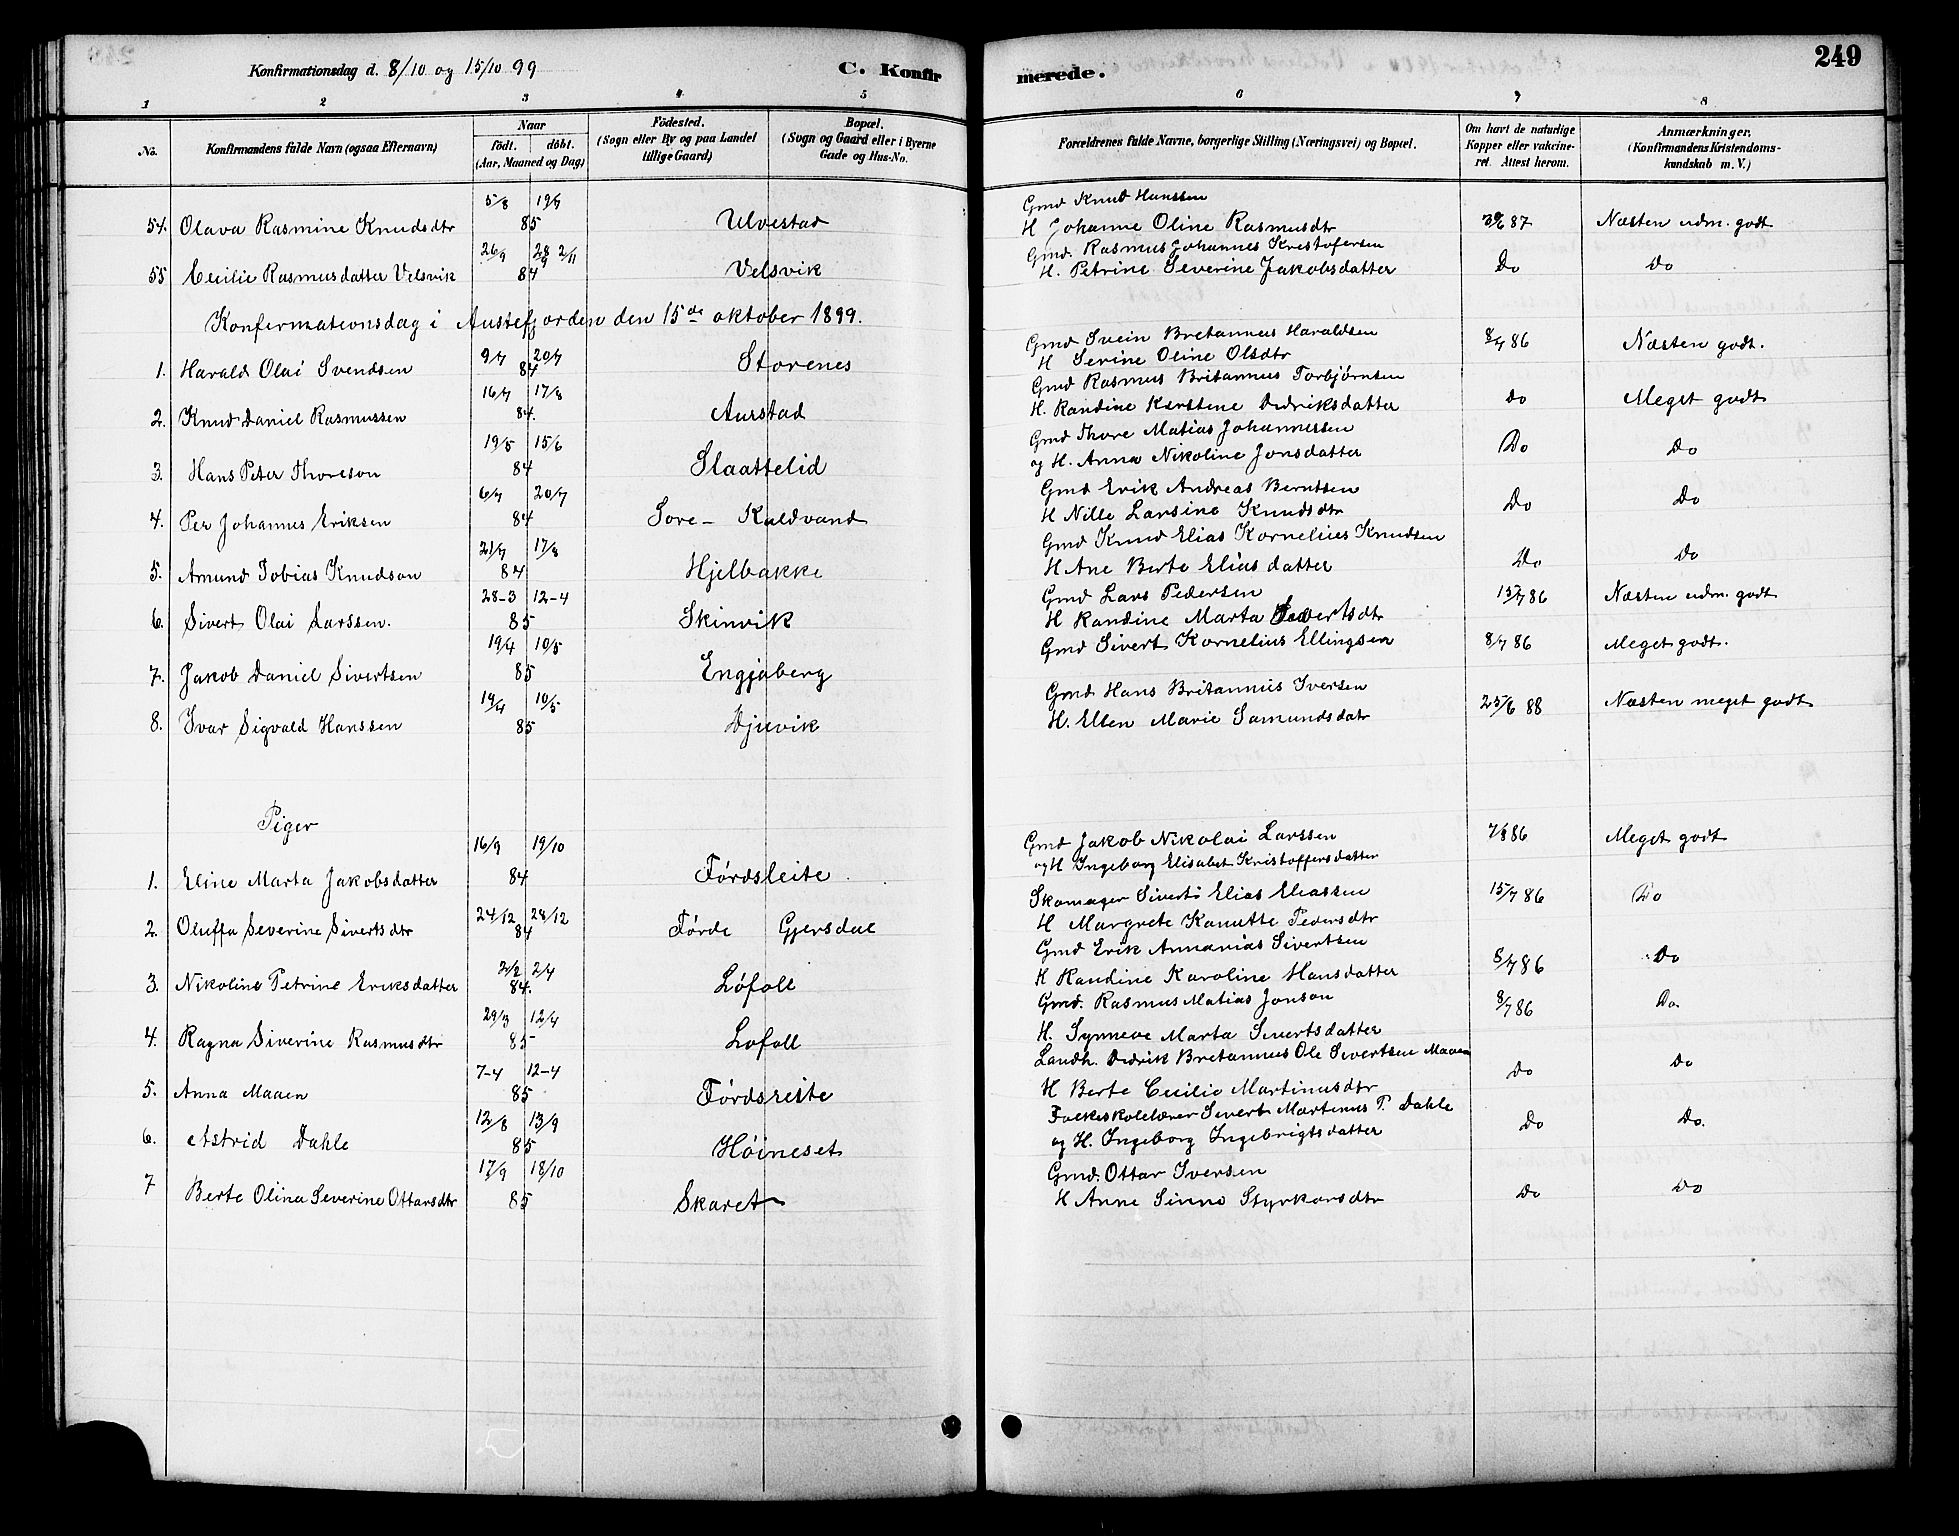 249
Konfirmationsdag d. 8/10 og 15/10 99
C. Konfirmerede.
1 2 3 4 5 6 7 8
No.
Konfirmandens fulde Navn (ogsaa Efternavn)
Naar
födt. döbt.
(Aar, Maaned og Dag)
Födested.
(Sogn eller By og paa Landet tillige Gaard)
Bopæl.
(Sogn og Gaard eller i Byerne Gade og Hus-No.
Forældrenes fulde Navne, borgerlige Stilling (Næringsvei) og Bopæl.
Om havt de naturlige Kopper eller vakcineret. Attest herom.
Anmærkninger.
(Konfirmandens Kristendomskundskab m. V.)
5/8 19/9 Gmd Knud Hanssen
54. Olava Rasmine Knudsdtr 85 Ulvestad H Johanne Oline Rasmusdtr 87 Næsten udm. godt
26/9 28/9 2/11 Gmd. Rasmus Johannes Kristofersen
55 Cecilie Rasmusdatter Velsvik 84 Velsvik H. Petrine Severine Jakobsdatter Do Do
Konfermationsdag i Austefjorden den 15de oktober 1899.
9/7 20/7 Gmd Svein Bretannus Haraldsen 8/7 86 Næsten godt.
1. Harald Olai Svendsen 84 Storenes H Serine Oline Olsdtr
16/7 17/8 Gmd Rasmus Britannus Torbjørnsen
2. Knud Daniel Rasmussen 84. Aurstad H. Randine Karstene Didriksdatter Do Meget godt
19/5 15/6 Gmd Thore Matias Johannessen
3. Hans Peter Thoreson 84 Slaattelid og H. Anna Nikoline Jonsdatter Do Do
6/7 20/7 Gmd Erik Andreas Berntsen
4. Per Johannes Eriksen 84 Sore- Kaldvand H Nille Larsine Knudsdtr Do Do
21/7 17/8 Gmd Knud Elias Kornelius Knudsen
5. Amund Tobias Knudson 84 Hjelbakke H Ane Berte Eliasdatter Do Do
28-3 12-4 Gmd Lars Pedersen 15/7 86 Næsten udm. godt
6. Sivert Olai Larssen. 85 Skinvik H Randine Marta Sivertsdtr
19/4 10/5 Gmd Sivert Kornelius Ellingsen 8/7 86 Meget godt.
7. Jakob Daniel Sivertsen 85 Engjaberg
19/4 10/5 Gmd Hans Britannius Iversen
8. Ivar Sigvald Hanssen 85 Djuvik H. Ellen Marie Samundsdatr 25/6 88 Næsten meget godt
Piger
16/9 19/10 Gmd Jakob Nikolai Larssen 7/8 86 Meget godt
1. Eline Marta Jakobsdatter 84 Førdsleite og H Ingeborg Elisabet Kristoffersdatter
24/12 28/12 Skomager Sivert Elias Eliassen 15/7 86 Do
2. Oluffa Severine Sivertsdtr 84 Førde Gjersdal H Margrete Kanutte Pedersdtr
2/2 2/4 Gmd Erik Annanias Sivertsen
3. Nikoline Petrine Eriksdatter 84. Løfoll H Randine Karoline Hansdatter 8/7 86 Do
29/3 12/4 Gmd. Rasmus Matias Jonson 8/7 86 Do.
4. Ragna Siverine Rasmusdtr 85 Lofoll H. Synneve Marta Sivertsdatter
7-4 12-4 Landh. Didrik Bretannus Ole Sivertsen Maaen
5. Anna Maaen 85 Førdsleite H Berte Cecilie Martinusdtr Do Do
12/8 13/9 Folkeskolelærer Sivert Martinus P. Dahle
6. Astrid Dahle 85 Høineset og H. Ingeborg Ingebrigtsdatter Do Do.
17/9 18/10 Gmd. Ottar Iversen
7 Berte Olina Severine Ottarsdtr 85 Skaret H Anne Sinne Styrkorsdtr Do Do